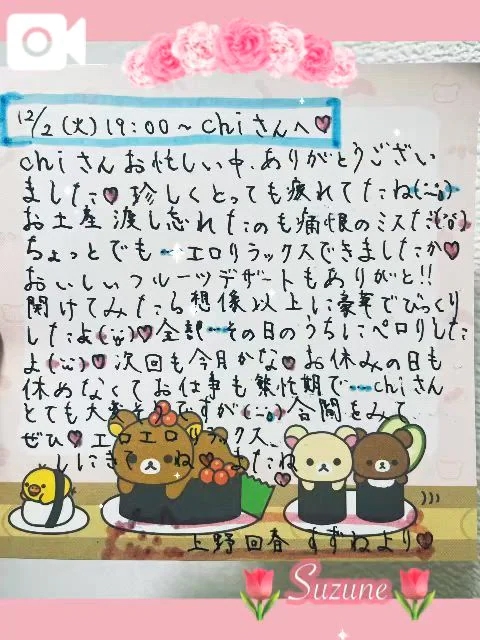 12/2(火)19:00~chiさんへ♥
chiさんお忙しい中、ありがとうござい
ました♥珍しくとっても疲れてたね(;_;)
お土産渡し忘れたのも痛恨のミスだ(;_;)
ちょっとでも…エロリラックスできましたか♥
おいしいフルーツデザートもありがと!!
開けてみたら想像以上に豪華でびっくり
したよ(;_;)♥全部…その日のうちにペロリした
よ(;_;)♥次回も今月かな♥お休みの日も
休めなくてお仕事も繁忙期で…chiさん
とても大変そうですが(;_;)合間をみて
ぜひ♥エロエロリラックス
しにきてね♥またね♥
上野回春 すずねより♥
Suzune